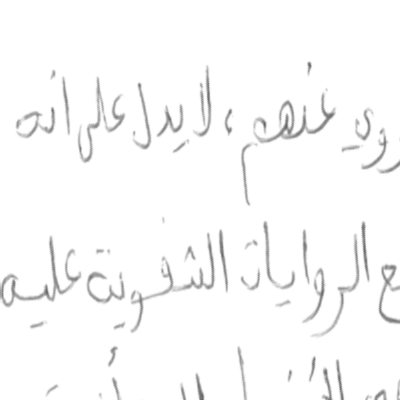 روي عنهم، لا يدل على انه
ع الروايات الشفوية عليه